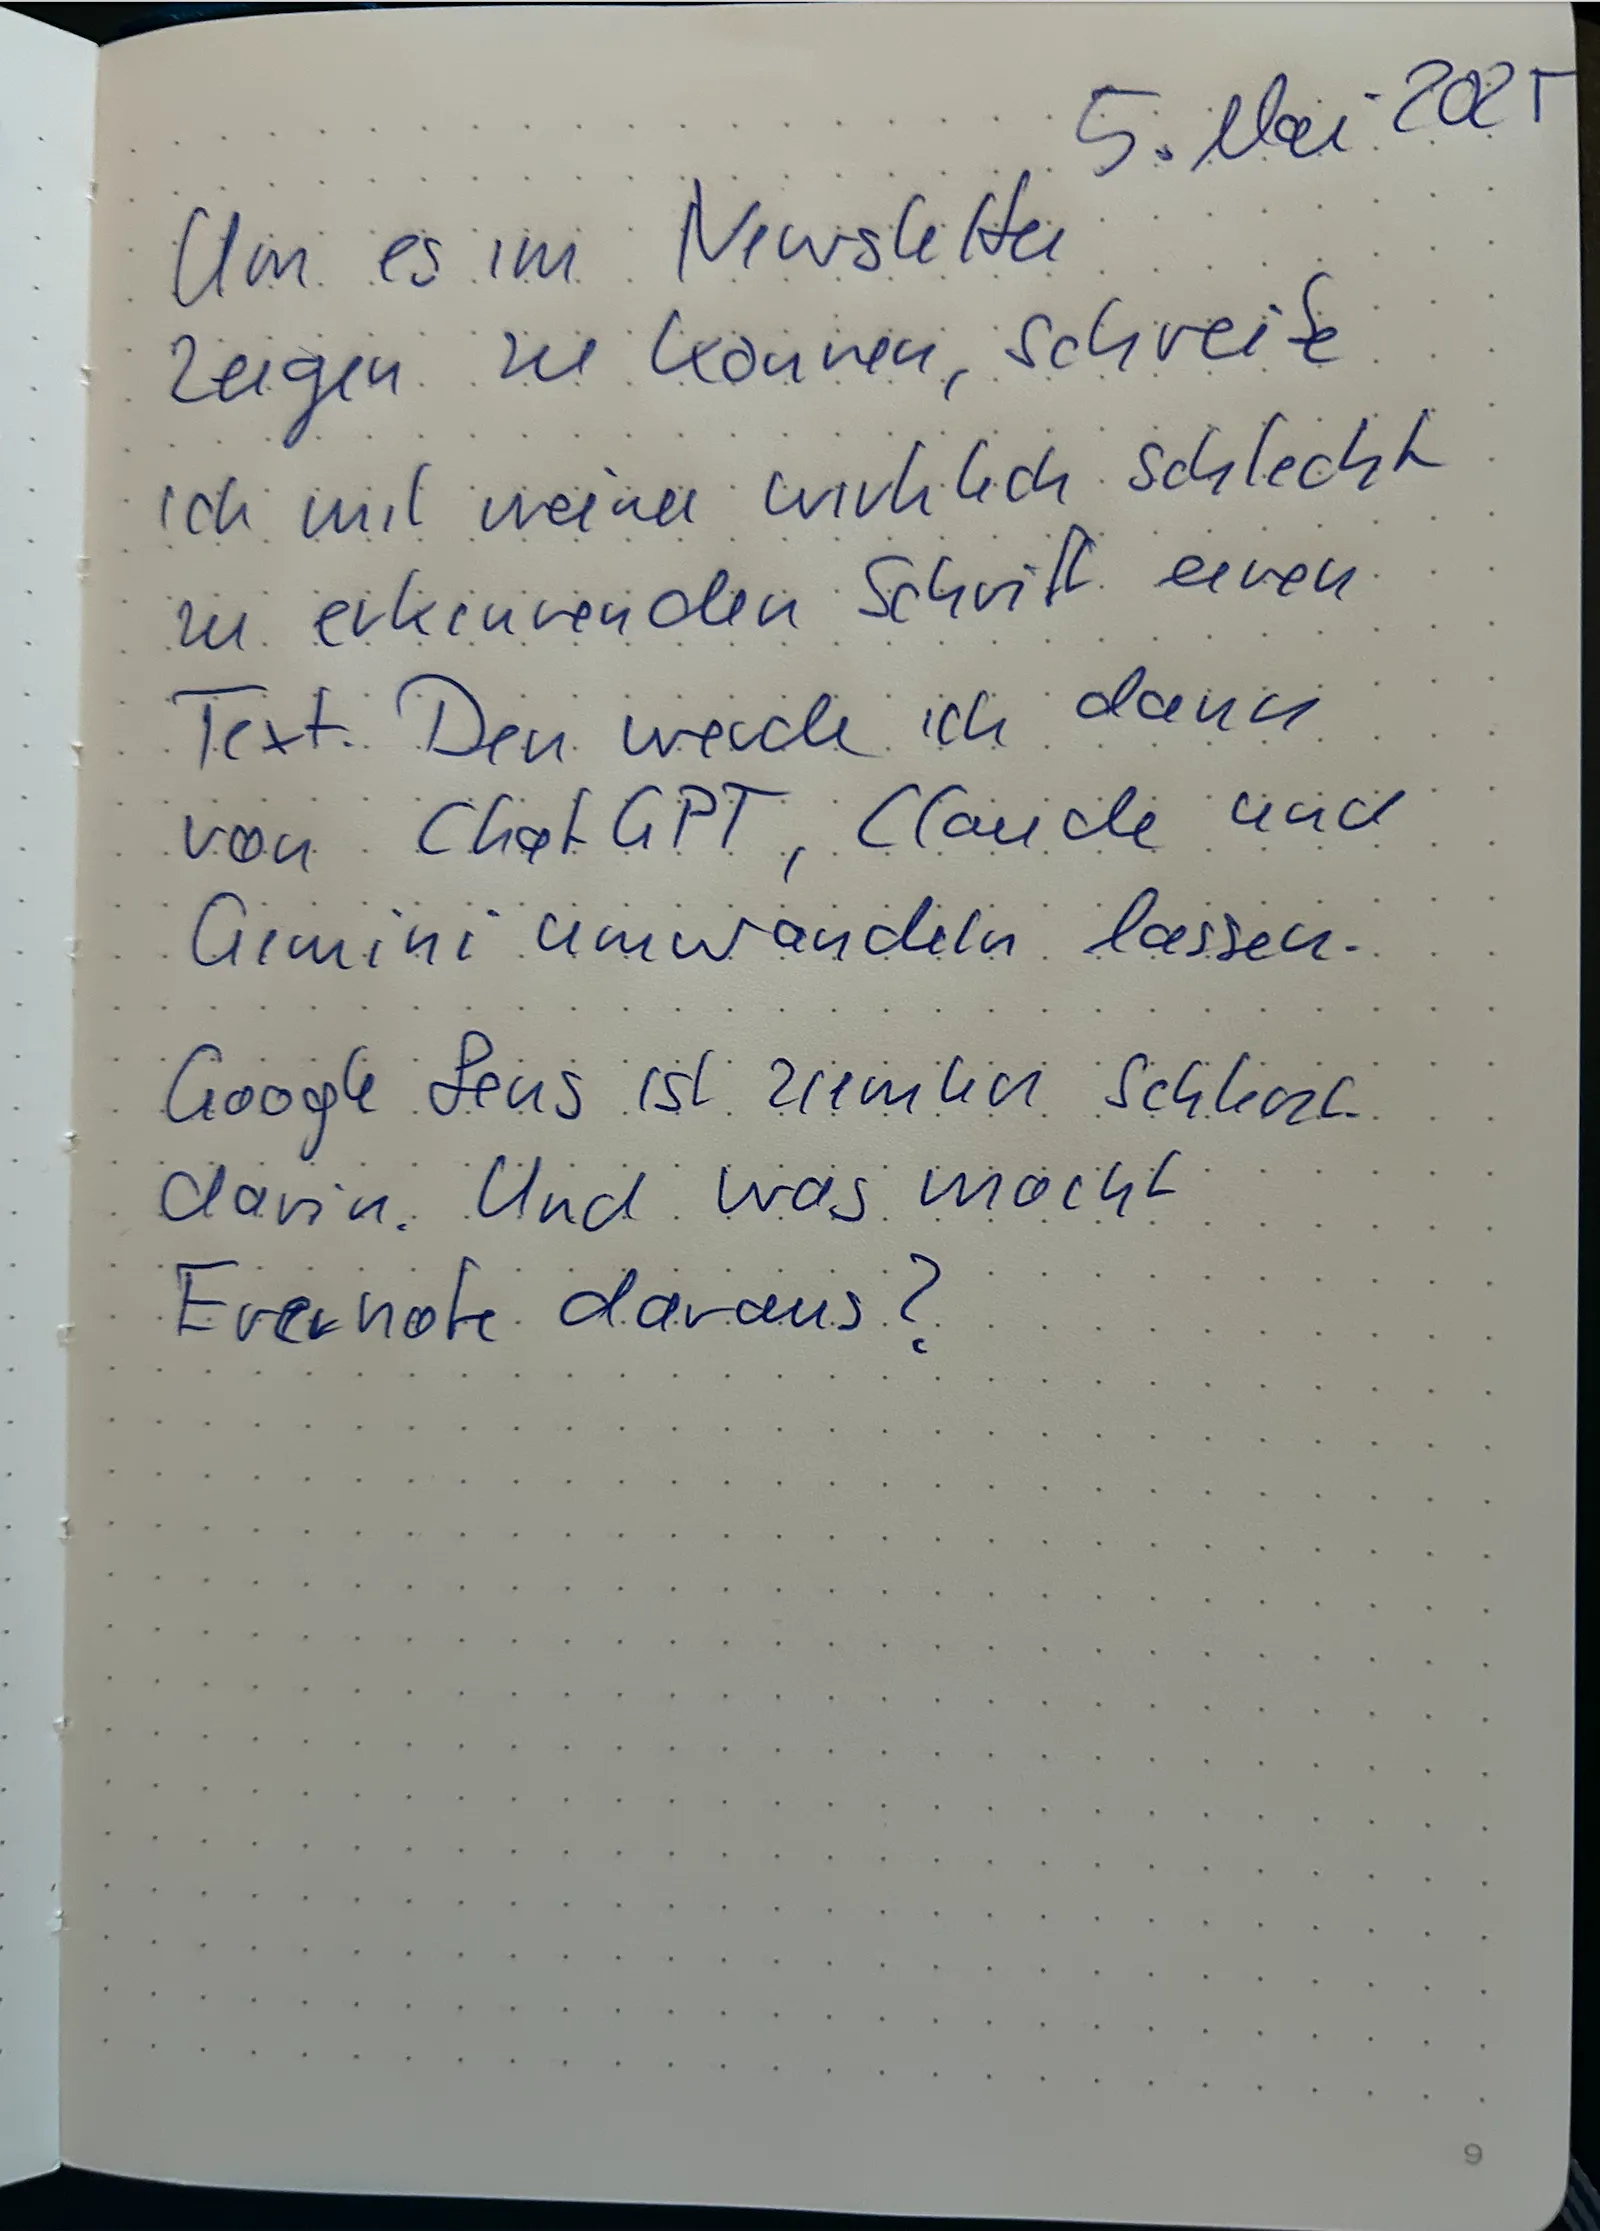 5. Mai 2025
Um es im Newsletter
zeigen zu können, schreibe
ich mit meiner wirklich schlecht
zu erkennenden Schrift einen
Text. Den werde ich dann
von ChatGPT, Claude und
Gemini umwandeln lassen.
Google Lens ist ziemlich schlecht
darin. Und was macht
Evernote daraus?
9